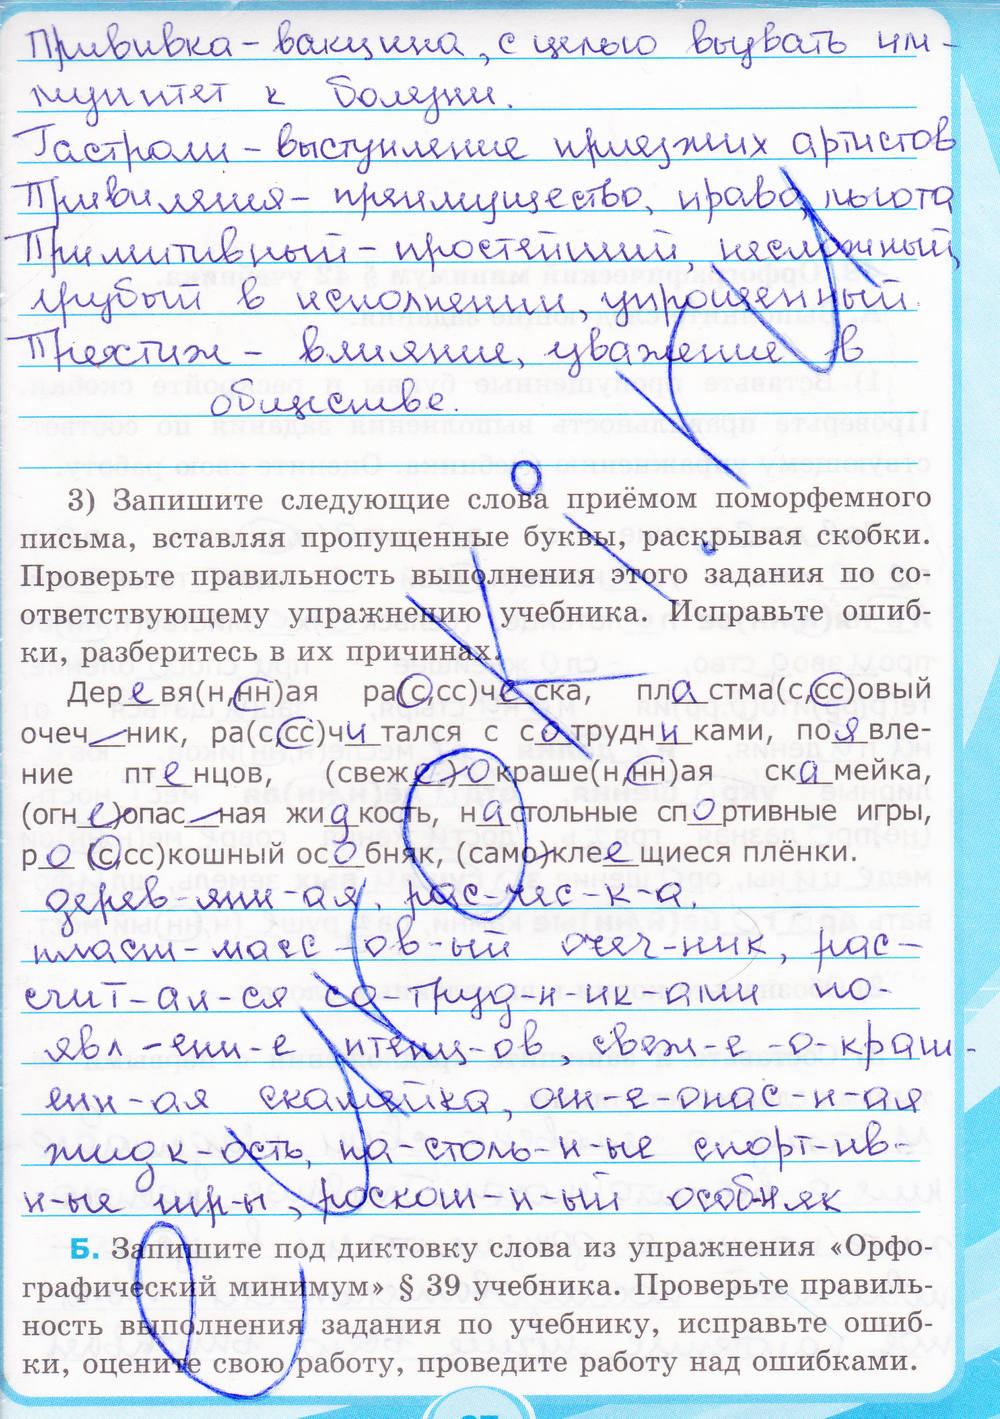 Прививка – вакцина, с целью вызвать им-
мунитет к болезни.
Гастроли – выступление приезжих артистов
Привилегия – преимущество, право, льгота
Примитивный – простейший, несложный,
грубый в исполнении, упрощенный.
Престиж – влияние, уважение в
обществе.
3) Запишите следующие слова приёмом поморфемного
письма, вставляя пропущенные буквы, раскрывая скобки.
Проверьте правильность выполнения этого задания по со-
ответствующему упражнению учебника. Исправьте ошиб-
ки, разберитесь в их причинах.
Дер е вя(н,нн)ая ра(с,сс)ч е ска, пл а стма(с,сс)овый
очеч – ник, ра(с,сс)ч и тался с с о трудн и ками, по я вле-
ние пт е нцов, (свеж е)о краше(н,нн)ая ск а мейка,
(огн е)опас – ная жи д кость, н а стольные сп о ртивные игры,
р о (с,сс)кошный ос о бняк, (само)кле е щиеся плёнки.
дерев-янн-ая, рас-чес-к-а,
пласт-масс-ов-ый очеч-ник, рас-
счит-ал-ся со труд-н-ик-ами по-
явл-ени-е птенц-ов, свеж-е-о-краш-
енн-ая скамейка, огн-е-опас-н-ая
жидк-ость, на столь-н-ые спорт-ив-
н-ые игр-ы, роскош-н-ый особняк
Б. Запишите под диктовку слова из упражнения «Орфо-
графический минимум» § 39 учебника. Проверьте правиль-
ность выполнения задания по учебнику, исправьте ошиб-
ки, оцените свою работу, проведите работу над ошибками.